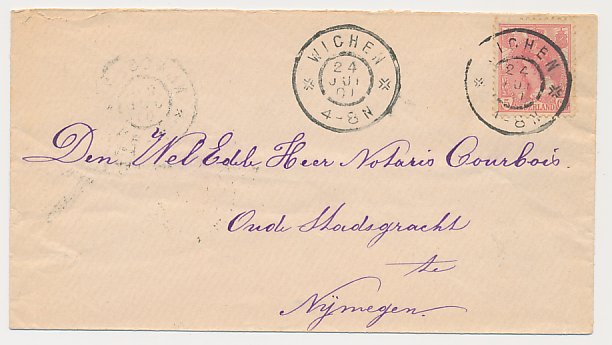 WICHEN
24
JUI
01
4-8N
WICHEN
24
4-8N
Den Wel Edele Heer Notaris Courbois.
Oude Stadsgracht
te
Nijmegen.